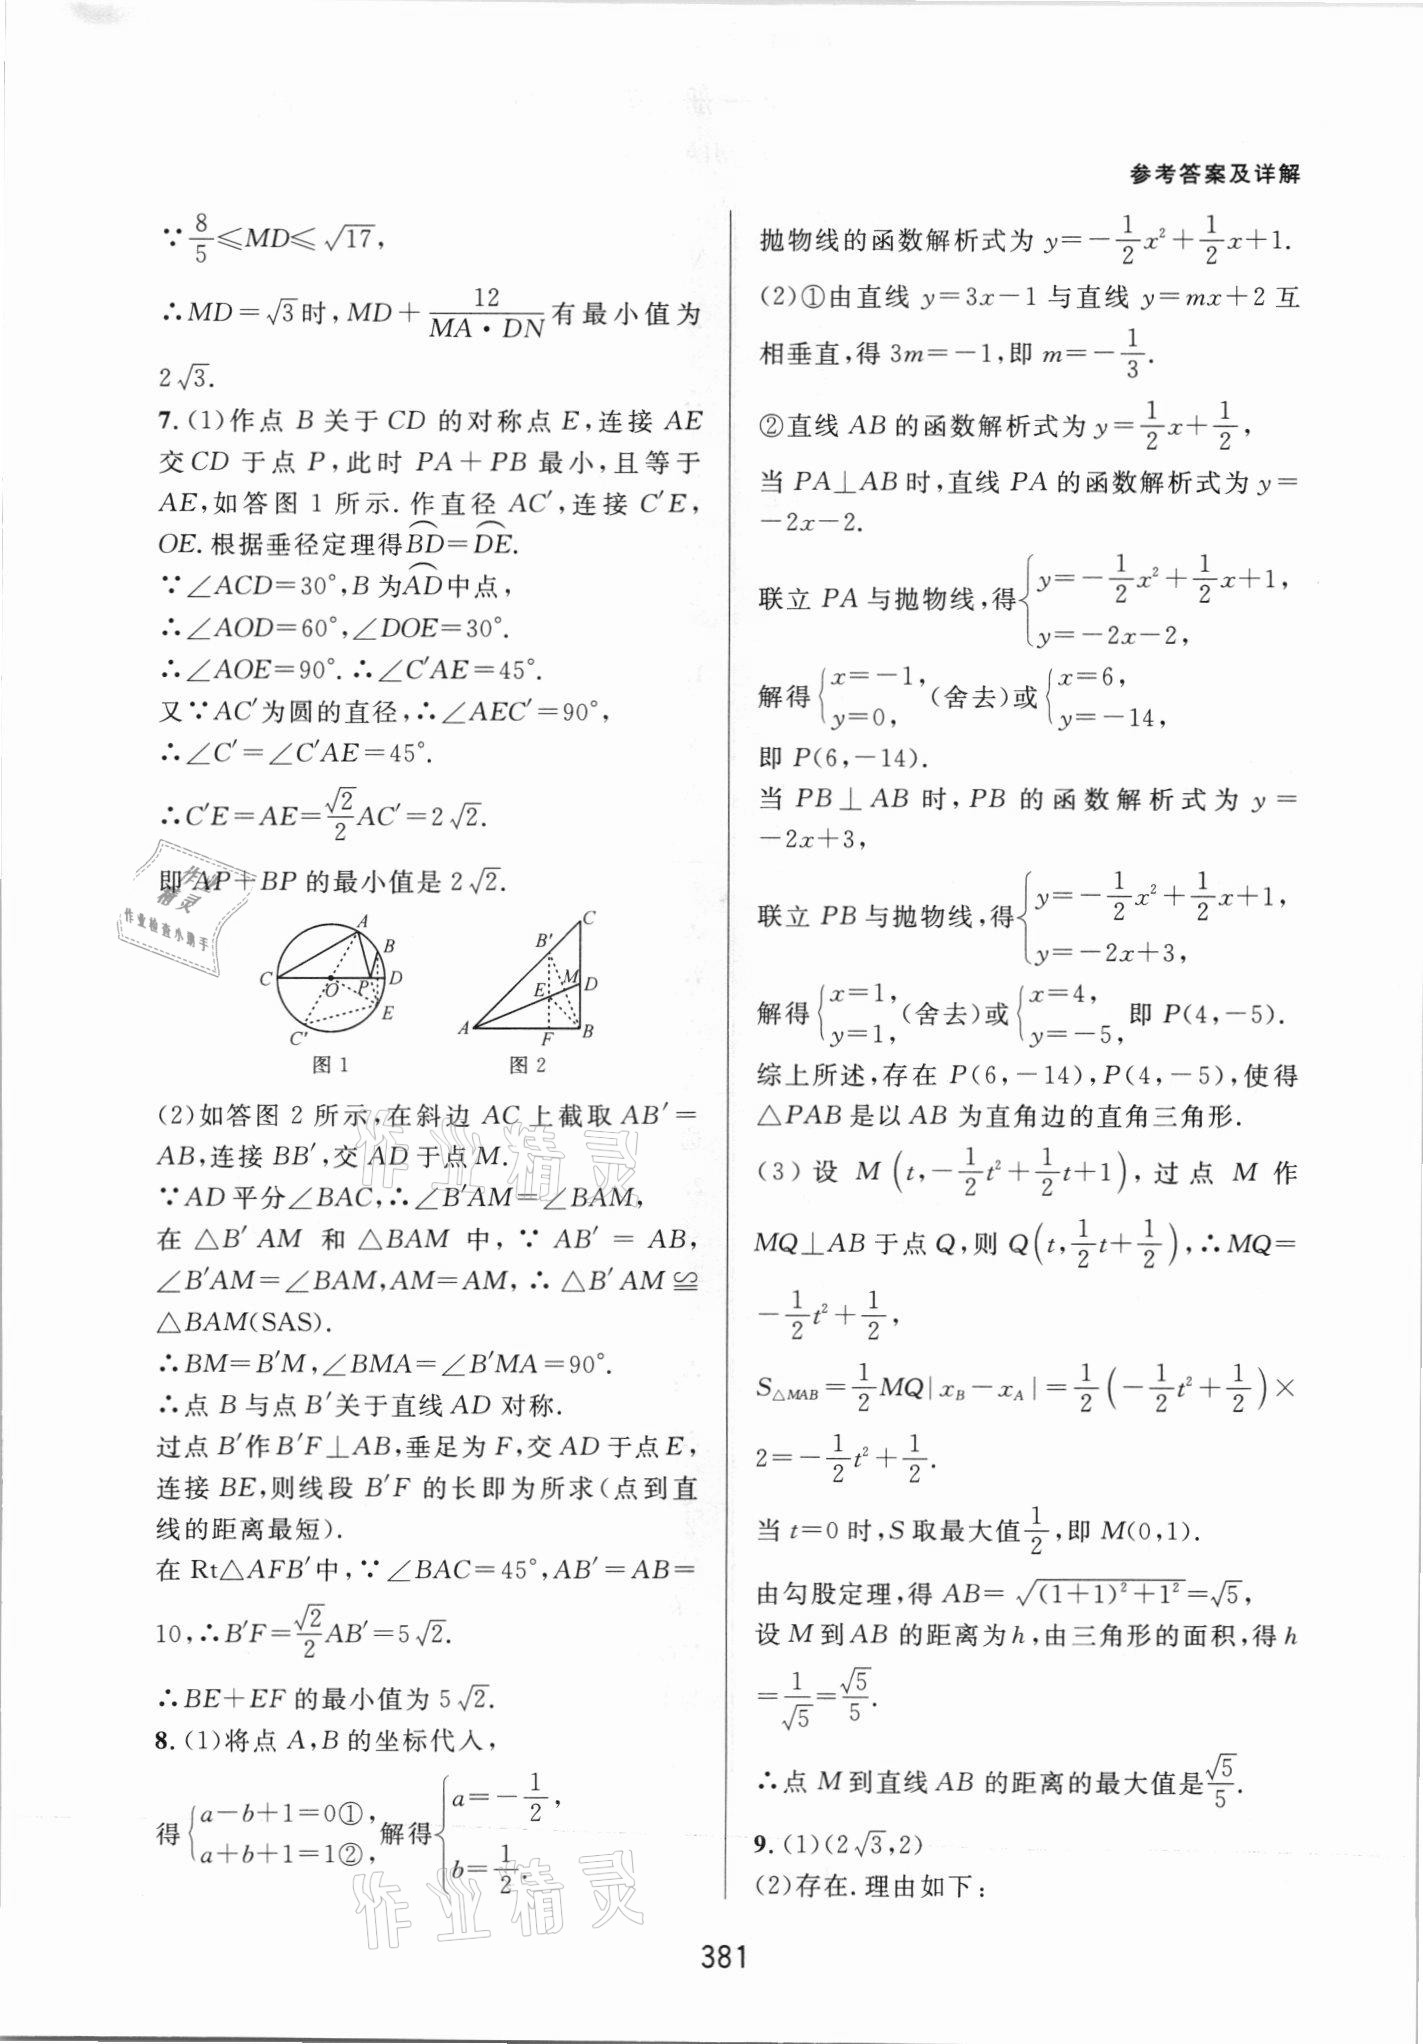 参考答案及详解
∵8/5≤MD≤√17,
∴MD=√3时,MD+12/(MA·DN)有最小值为
2√3.
7.(1)作点 B 关于 CD 的对称点 E,连接 AE
交CD 于点 P,此时 PA+PB 最小,且等于
AE,如答图 1 所示.作直径 AC′,连接 C′E,
OE.根据垂径定理得⌒BD=⌒DE.
∵∠ACD=30°,B 为⌒AD中点,
∴∠AOD=60°,∠DOE=30°.
∴∠AOE=90°.∴∠C′AE=45°.
又∵AC′为圆的直径,∴∠AEC′=90°,
∴∠C′=∠C′AE=45°.
∴C′E=AE=√2/2 AC′=2√2.
即 AP+BP 的最小值是 2√2.
A
B
C
O
P
D
E
C′
图 1
C
B′
M
D
E
A
F
B
图 2
(2)如答图 2 所示,在斜边 AC 上截取 AB′=
AB,连接 BB′,交 AD 于点 M.
∵AD 平分∠BAC,∴∠B′AM=∠BAM,
在 △B′AM 和 △BAM 中,∵ AB′ = AB,
∠B′AM=∠BAM,AM=AM,∴△B′AM≌
△BAM(SAS).
∴BM=B′M,∠BMA=∠B′MA=90°.
∴点 B 与点 B′关于直线 AD 对称.
过点 B′作 B′F⊥AB,垂足为 F,交 AD 于点 E,
连接 BE,则线段 B′F 的长即为所求(点到直
线的距离最短).
在 Rt△AFB′中,∵∠BAC=45°,AB′=AB=
10,∴B′F=√2/2 AB′=5√2.
∴BE+EF 的最小值为 5√2.
8.(1)将点 A,B 的坐标代入,
得{a-b+1=0①, a+b+1=1②, 解得{a=-1/2, b=1/2.
抛物线的函数解析式为 y=-1/2x²+1/2x+1.
(2)①由直线 y=3x-1 与直线 y=mx+2 互
相垂直,得 3m=-1,即 m=-1/3.
②直线 AB 的函数解析式为 y=1/2x+1/2,
当 PA⊥AB 时,直线 PA 的函数解析式为 y=
-2x-2.
联立 PA 与抛物线,得{y=-1/2x²+1/2x+1, y=-2x-2,
解得{x=-1, y=0,(舍去)或{x=6, y=-14,
即 P(6,-14).
当 PB⊥AB 时,PB 的函数解析式为 y=
-2x+3,
联立 PB 与抛物线,得{y=-1/2x²+1/2x+1, y=-2x+3,
解得{x=1, y=1,(舍去)或{x=4, y=-5,即 P(4,-5).
综上所述,存在 P(6,-14),P(4,-5),使得
△PAB是以 AB 为直角边的直角三角形.
(3)设 M(t,-1/2t²+1/2t+1),过点 M 作
MQ⊥AB 于点 Q,则 Q(t,1/2t+1/2),∴MQ=
-1/2t²+1/2,
S△MAB=1/2MQ|xB-xA|=1/2(-1/2t²+1/2)×
2=-1/2t²+1/2.
当 t=0 时,S 取最大值1/2,即 M(0,1).
由勾股定理,得 AB=√((1+1)²+1²)=√5,
设 M 到 AB 的距离为 h,由三角形的面积,得 h
=1/√5=√5/5.
∴点 M 到直线 AB 的距离的最大值是√5/5.
9.(1)(2√3,2)
(2)存在.理由如下:
381
作业精灵
作业检查小助手
作业精灵
作业精灵